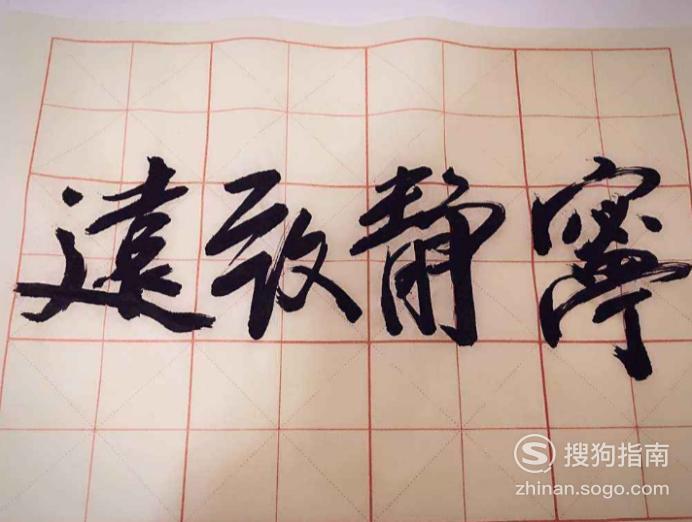 寧静致遠
搜狗指南
zhinan.sogo.com